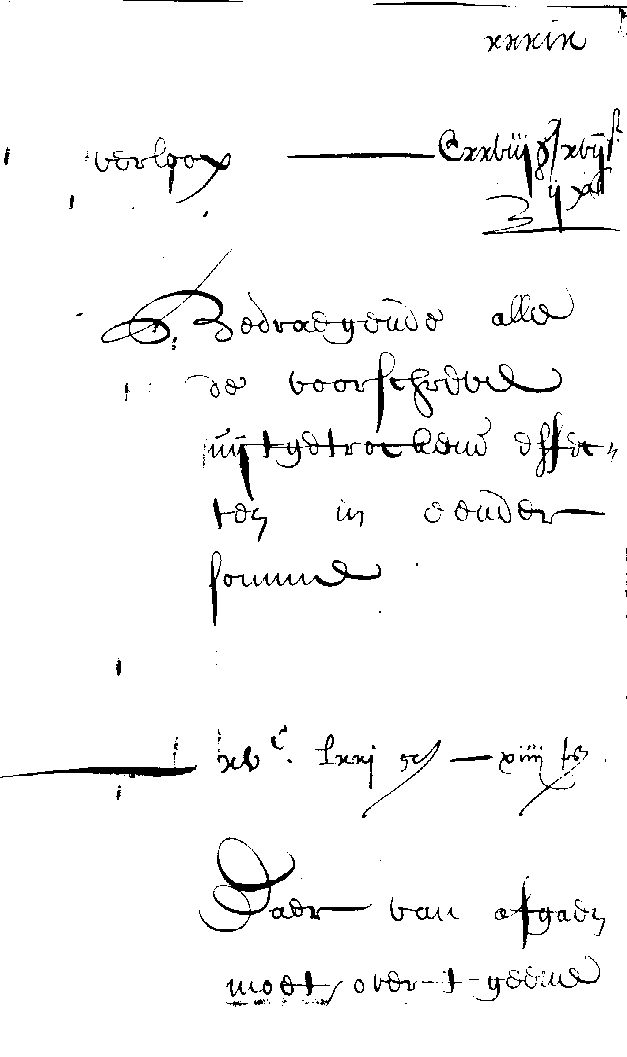 xxxix
verloop Cxxviij g xvij st
ij
Bedraegende alle
de voorschreven
uijtgetrocken effec-
ten in eender
somme
xvc. lxxj g xiiij st
Daer van afgaen
moet over t geene